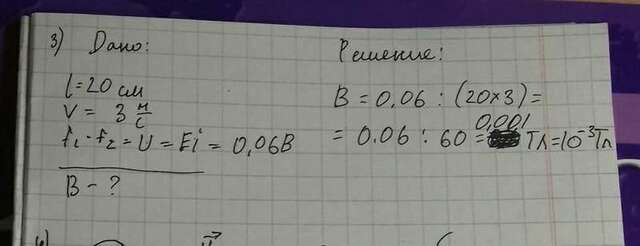 3) Дано:
Решение:
l = 20 см
V = 3 м/с
f₁ - f₂ = U = Ei = 0,06В
B - ?
B = 0,06 : (20×3) =
= 0.06 : 60 = 0,001 Тл = 10⁻³ Тл